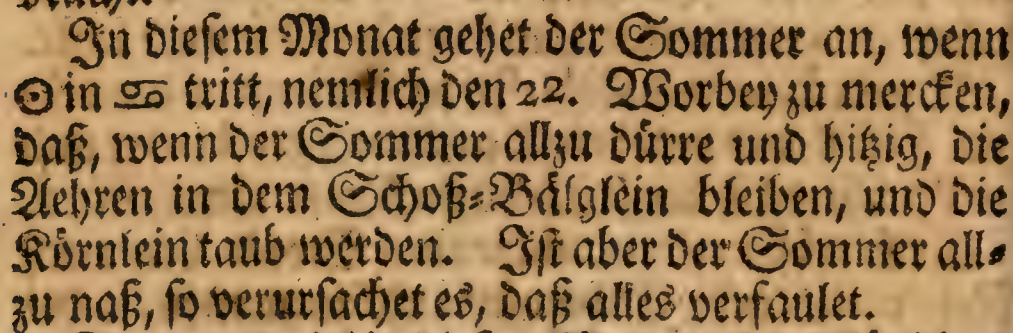 In dieſem Monat gehet der Sommer an, wenn
☉ in ♋ tritt, nemlich den 22. Worbey zu mercken,
daß, wenn der Sommer allzu dürre und hitzig, die
Aehren in dem Schoß-Bälglein bleiben, und die
Körnlein taub werden. Iſt aber der Sommer all-
zu naß, ſo verurſachet es, daß alles verfaulet.